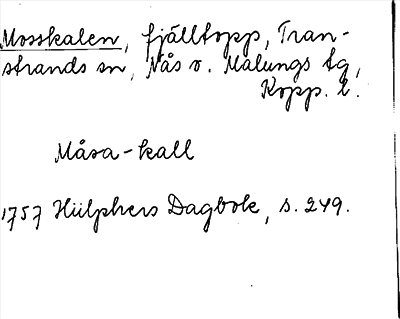 Mosskalen, fjälltopp, Tran-
strands sn, Nås o. Malungs tg,
Kopp. l.
Måsa-kall
1757 Hülphers Dagbok, s. 249.